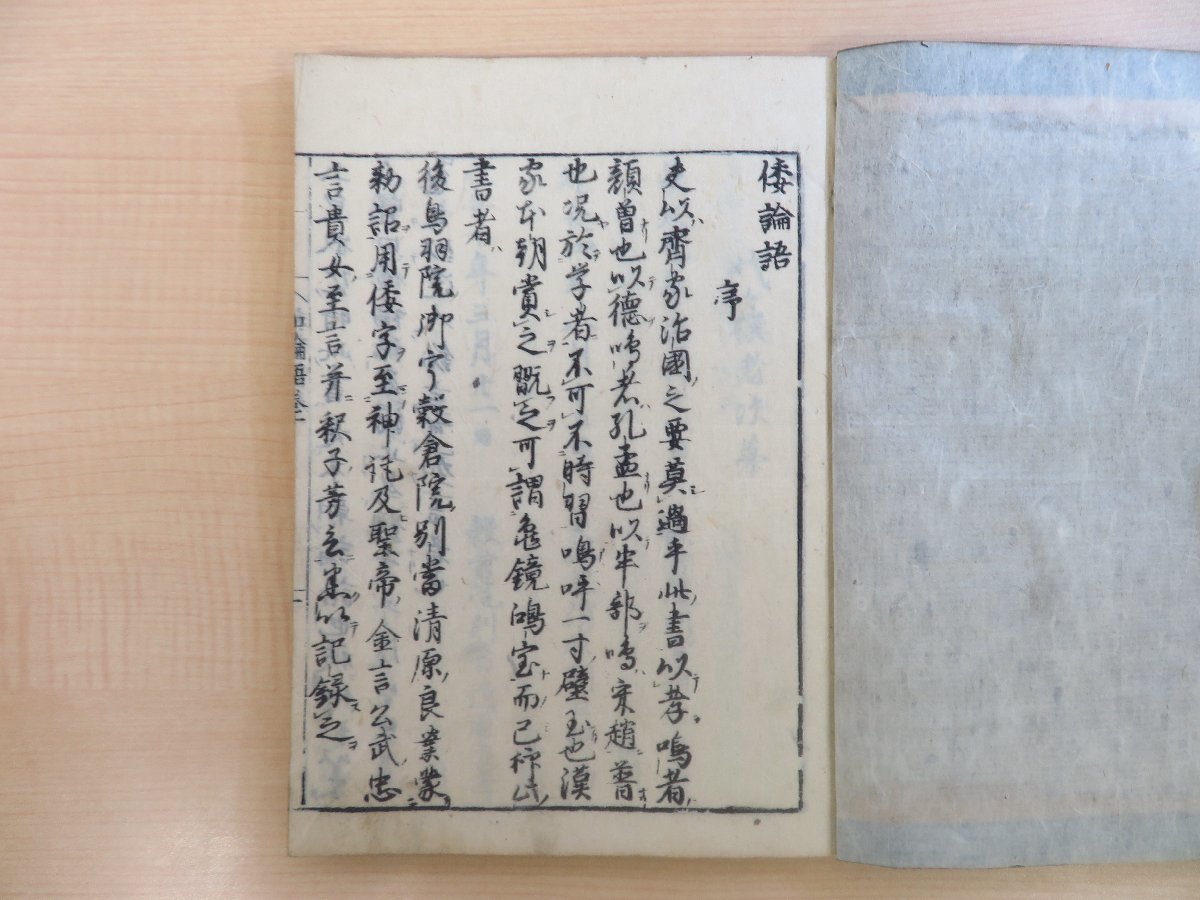 倭論語
序
夫以齊家治國之要莫過乎此書以孝鳴者
顔曽也以德鳴者孔孟也以半部鳴宋趙普
也况於学者不可不時習嗚呼一寸璧玉也漢
家本朝賞之翫之可謂亀鏡鴻宝而已神此
書者
後鳥羽院御宇穀倉院別當清原良業蒙
勅詔用倭字至神託及聖帝金言公武忠
言貴女至言并釈子芳言悉以記録之
和論語巻一